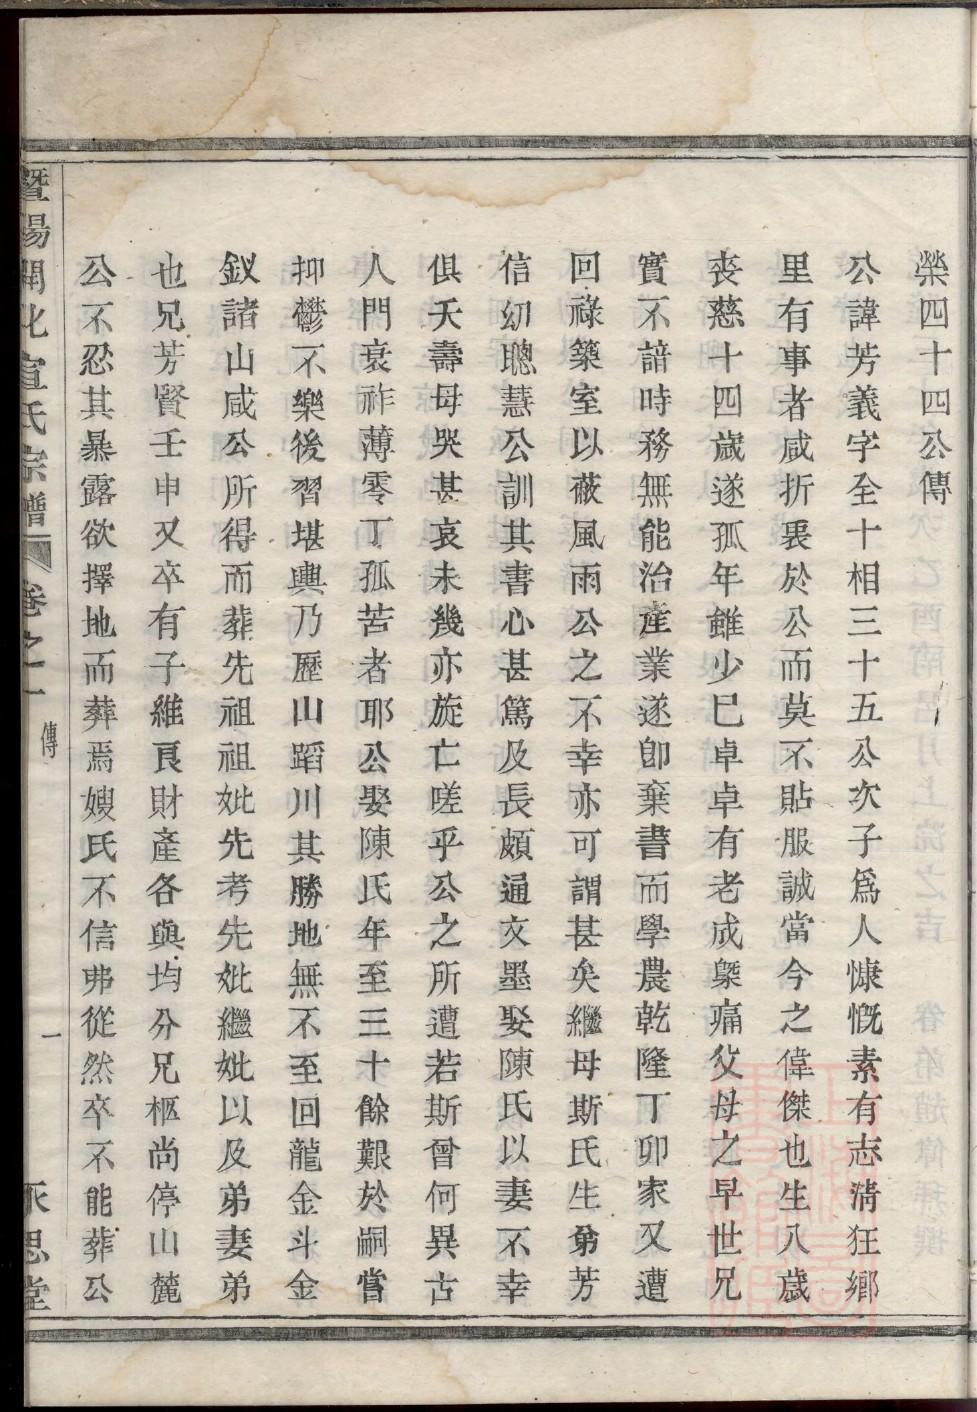 榮四十四公傳
公諱芳義字全十相三十五公次子爲人慷慨素有志淸狂鄉
里有事者咸折衷於公而莫不貼服誠當今之偉傑也生八歲
喪慈十四歲遂孤年雖少已卓卓有老成槩痛父母之早世兄
實不諳時務無能治產業遂卽棄書而學農乾隆丁卯家又遭
回祿築室以蔽風雨公之不幸亦可謂甚矣繼母斯氏生弟芳
信幼聰慧公訓其書心甚篤及長頗通文墨娶陳氏以妻不幸
俱夭壽母哭甚哀未幾亦旋亡嗟乎公之所遭若斯曾何異古
人門衰祚薄零丁孤苦者耶公娶陳氏年至三十餘艱於嗣嘗
抑鬱不樂後習堪輿乃歷山蹈川其勝地無不至回龍金斗金
釵諸山咸公所得而葬先祖祖妣先考先妣繼妣以及弟妻弟
也兄芳賢壬申又卒有子維良財產各與均分兄柩尚停山麓
公不忍其暴露欲擇地而葬焉嫂氏不信弗從然卒不能葬公
暨陽開化宣氏宗譜 卷之一 傳 一 承思堂